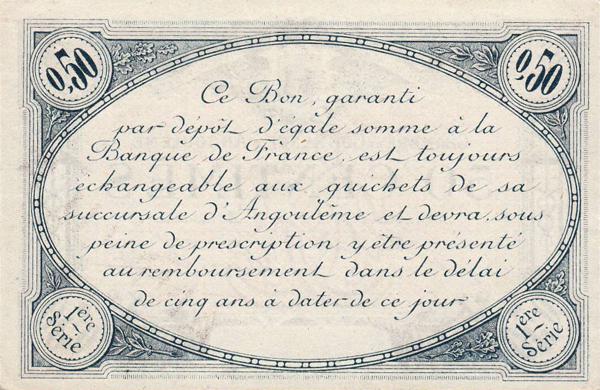 0,50
0,50
Ce Bon, garanti
par dépôt d'égale somme à la
Banque de France, est toujours
échangeable aux guichets de sa
succursale d'Angoulême et devra, sous
peine de prescription y être présenté
au remboursement dans le délai
de cinq ans à dater de ce jour
1ère
Série
1ère
Série